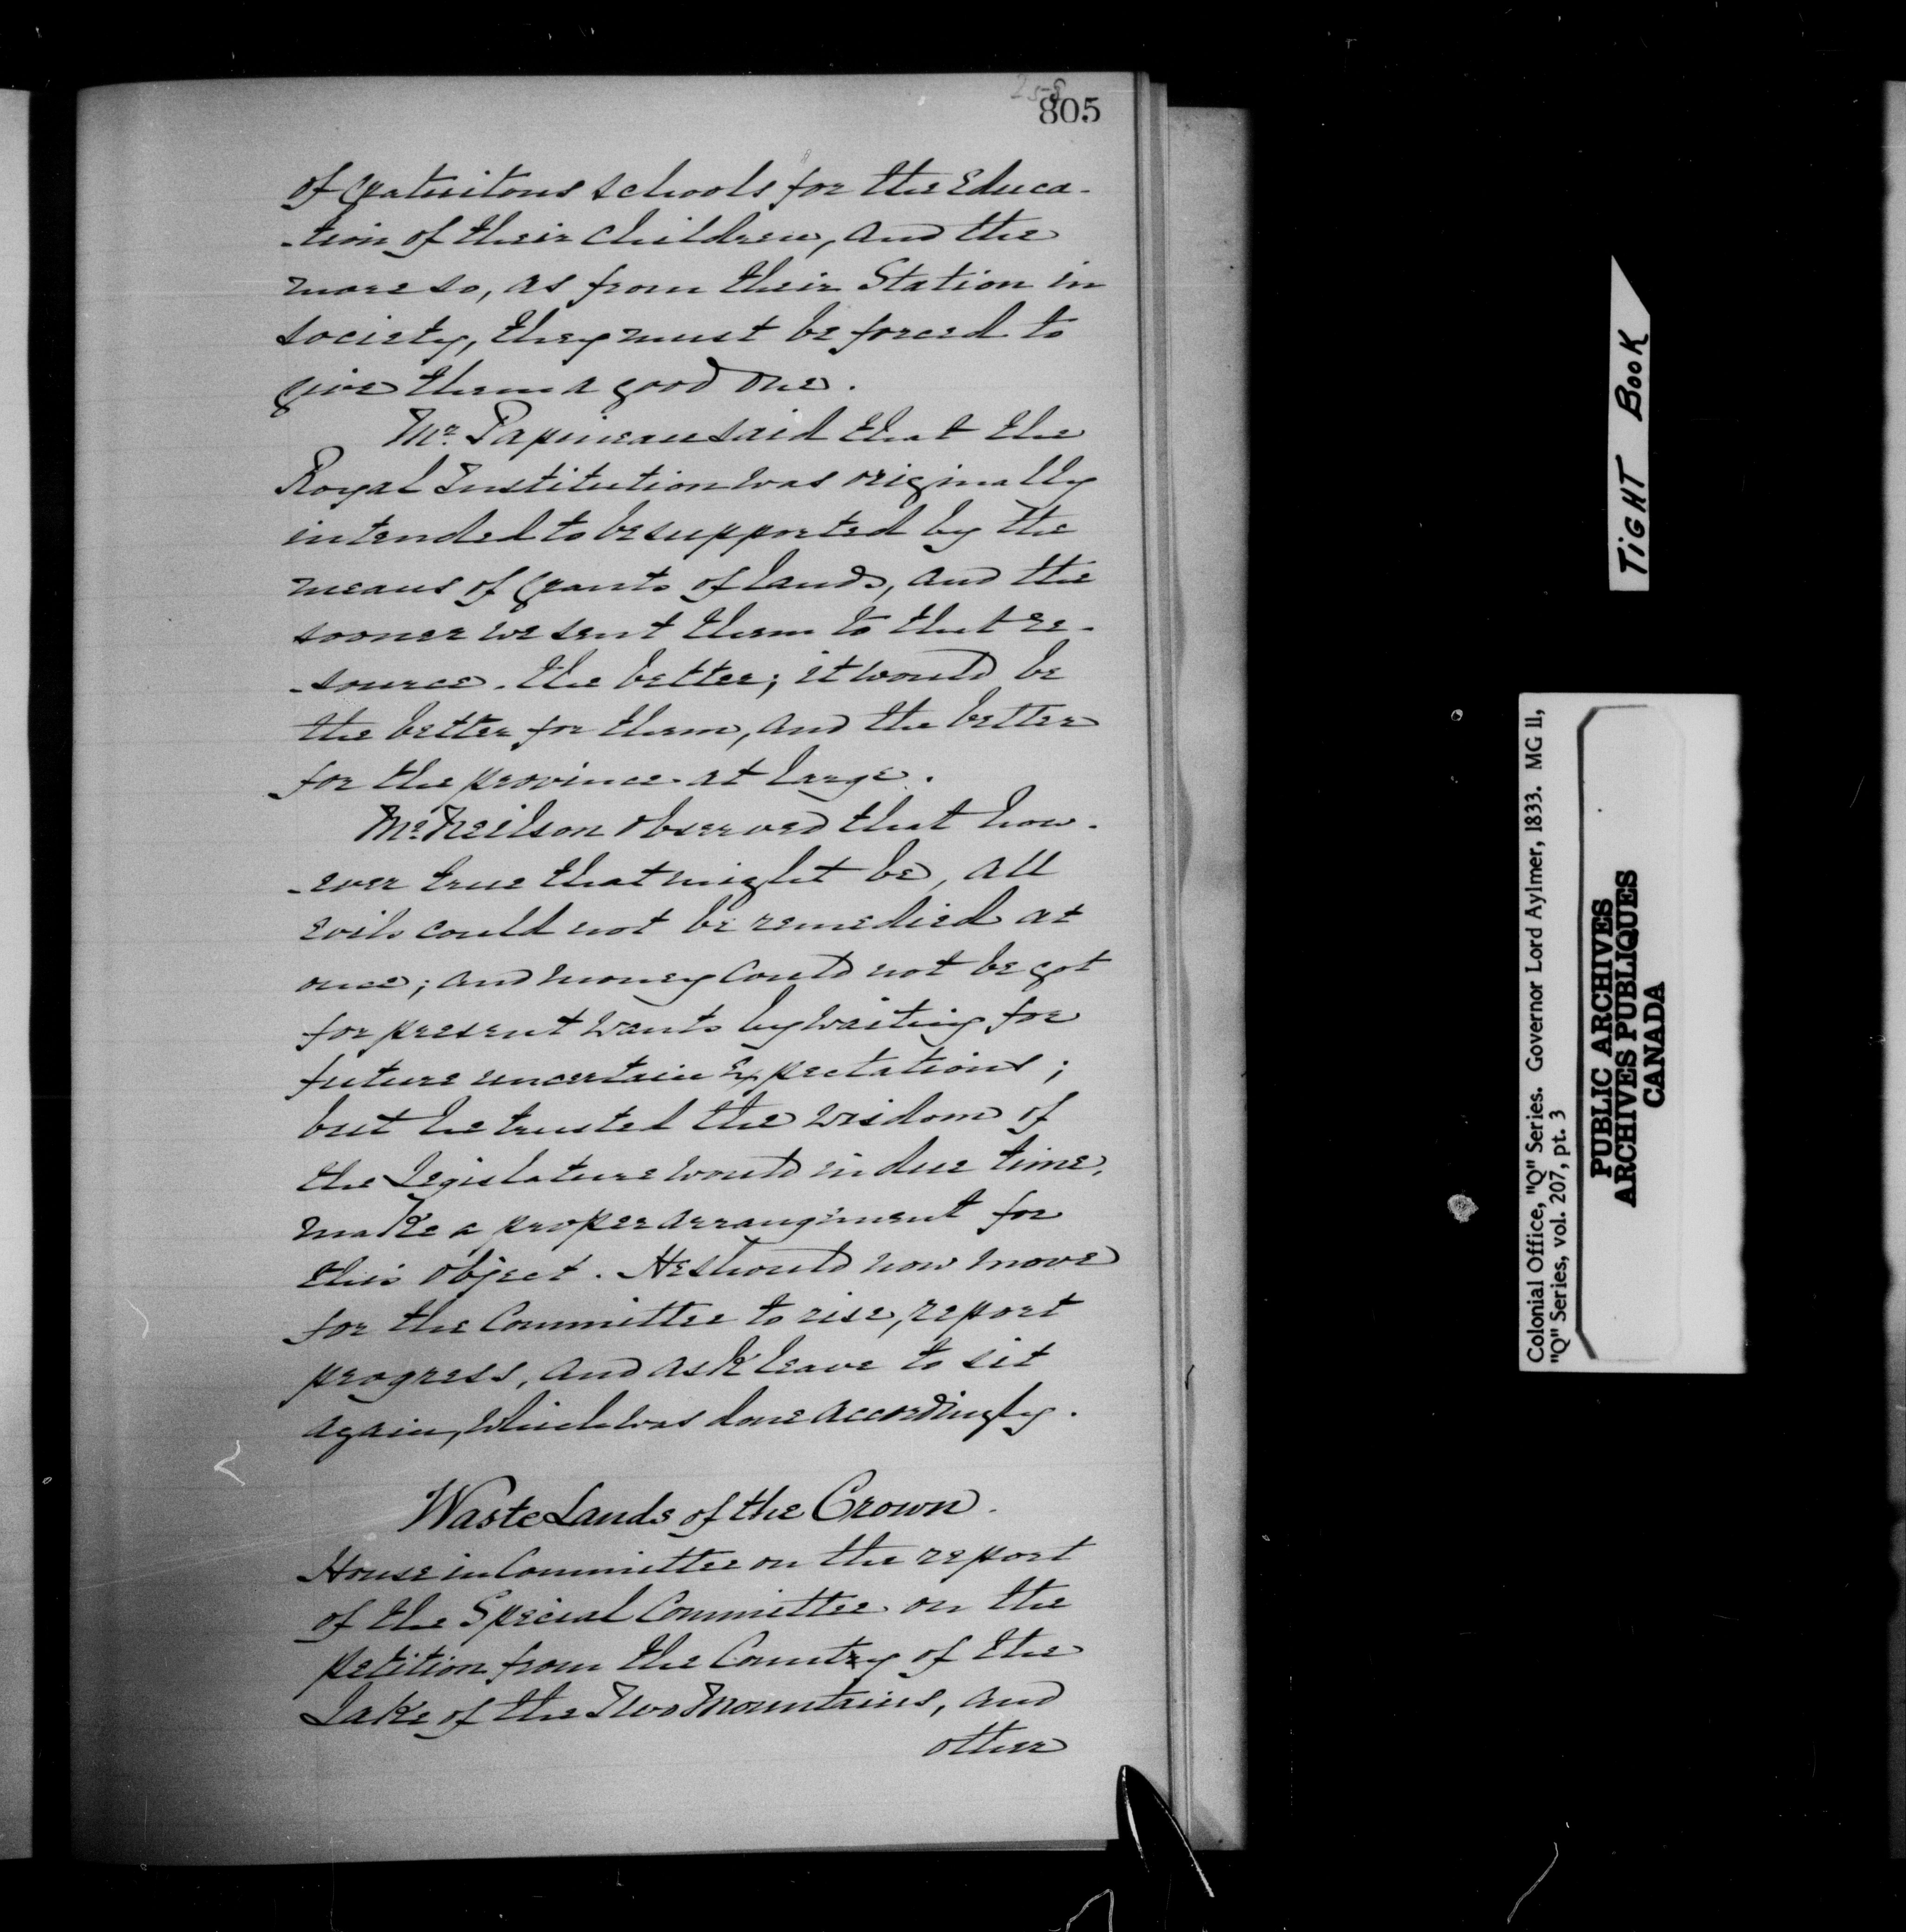 258
805
of gratuitous schools for the Educa-
-tion of their children, and the
more so, as from their Station in
society, they must be forced to
give them a good one.
Mr. Papineau said that the
Royal Institution was originally
intended to be supported by the
means of grants of lands, and the
sooner we sent them to that re-
-source the better; it would be
the better for them, and the better
for the province at large.
Mr. Neilson observed that how-
-ever true that might be, all
evils could not be remedied at
once; and money could not be got
for present wants by waiting for
future uncertain expectations;
but he trusted the wisdom of
the Legislature would in due time,
make a proper arrangement for
this object. He should now move
for the Committee to rise, report
progress, and ask leave to sit
again, which was done accordingly.
Waste Lands of the Crown.
House in Committee on the report
of the Special Committee on the
petition from the Country of the
Lake of the Two Mountains, and
other
TIGHT BOOK
Colonial Office, "Q" Series. Governor Lord Aylmer, 1833. MG 11,
"Q" Series, vol. 207, pt. 3
PUBLIC ARCHIVES
ARCHIVES PUBLIQUES
CANADA